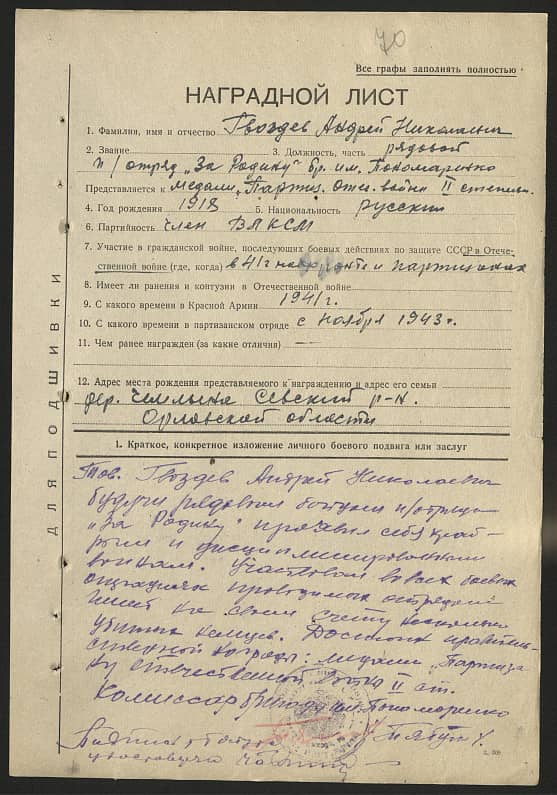 70
Все графы заполнять полностью
НАГРАДНОЙ ЛИСТ
1. Фамилия, имя и отчество Гвоздев Андрей Николаевич
2. Звание 3. Должность, часть рядовой
п/отряд „За Родину" бр. им. Пономаренко
Представляется к медали „Партиз. Отеч. войны II степени
4. Год рождения 1918 5. Национальность русский
6. Партийность член ВЛКСМ
7. Участие в гражданской войне, последующих боевых действиях по защите СССР в Отече-
ственной войне (где, когда) в 41 г на фронте и партизанах
8. Имеет ли ранения и контузии в Отечественной войне
9. С какого времени в Красной Армии 1941 г.
10. С какого времени в партизанском отряде с ноября 1943 г.
11. Чем ранее награжден (за какие отличия) —
12. Адрес места рождения представляемого к награждению и адрес его семьи
дер. Севский р-н
Орловской области
ДЛЯ ПОДШИВКИ
1. Краткое, конкретное изложение личного боевого подвига или заслуг
Тов. Гвоздев Андрей Николаевич
будучи рядовым бойцом п/отряда
„За Родину" проявил себя храб-
рым и дисциплинированным
воином. Участвовал во всех боевых
операциях проводимых отрядом
имеет на своем счету несколько
убитых немцев. Достоин правитель-
ственной награды: медали „Партиза
ну отечественной войны II ст.
Комиссар бригады им. Пономаренко